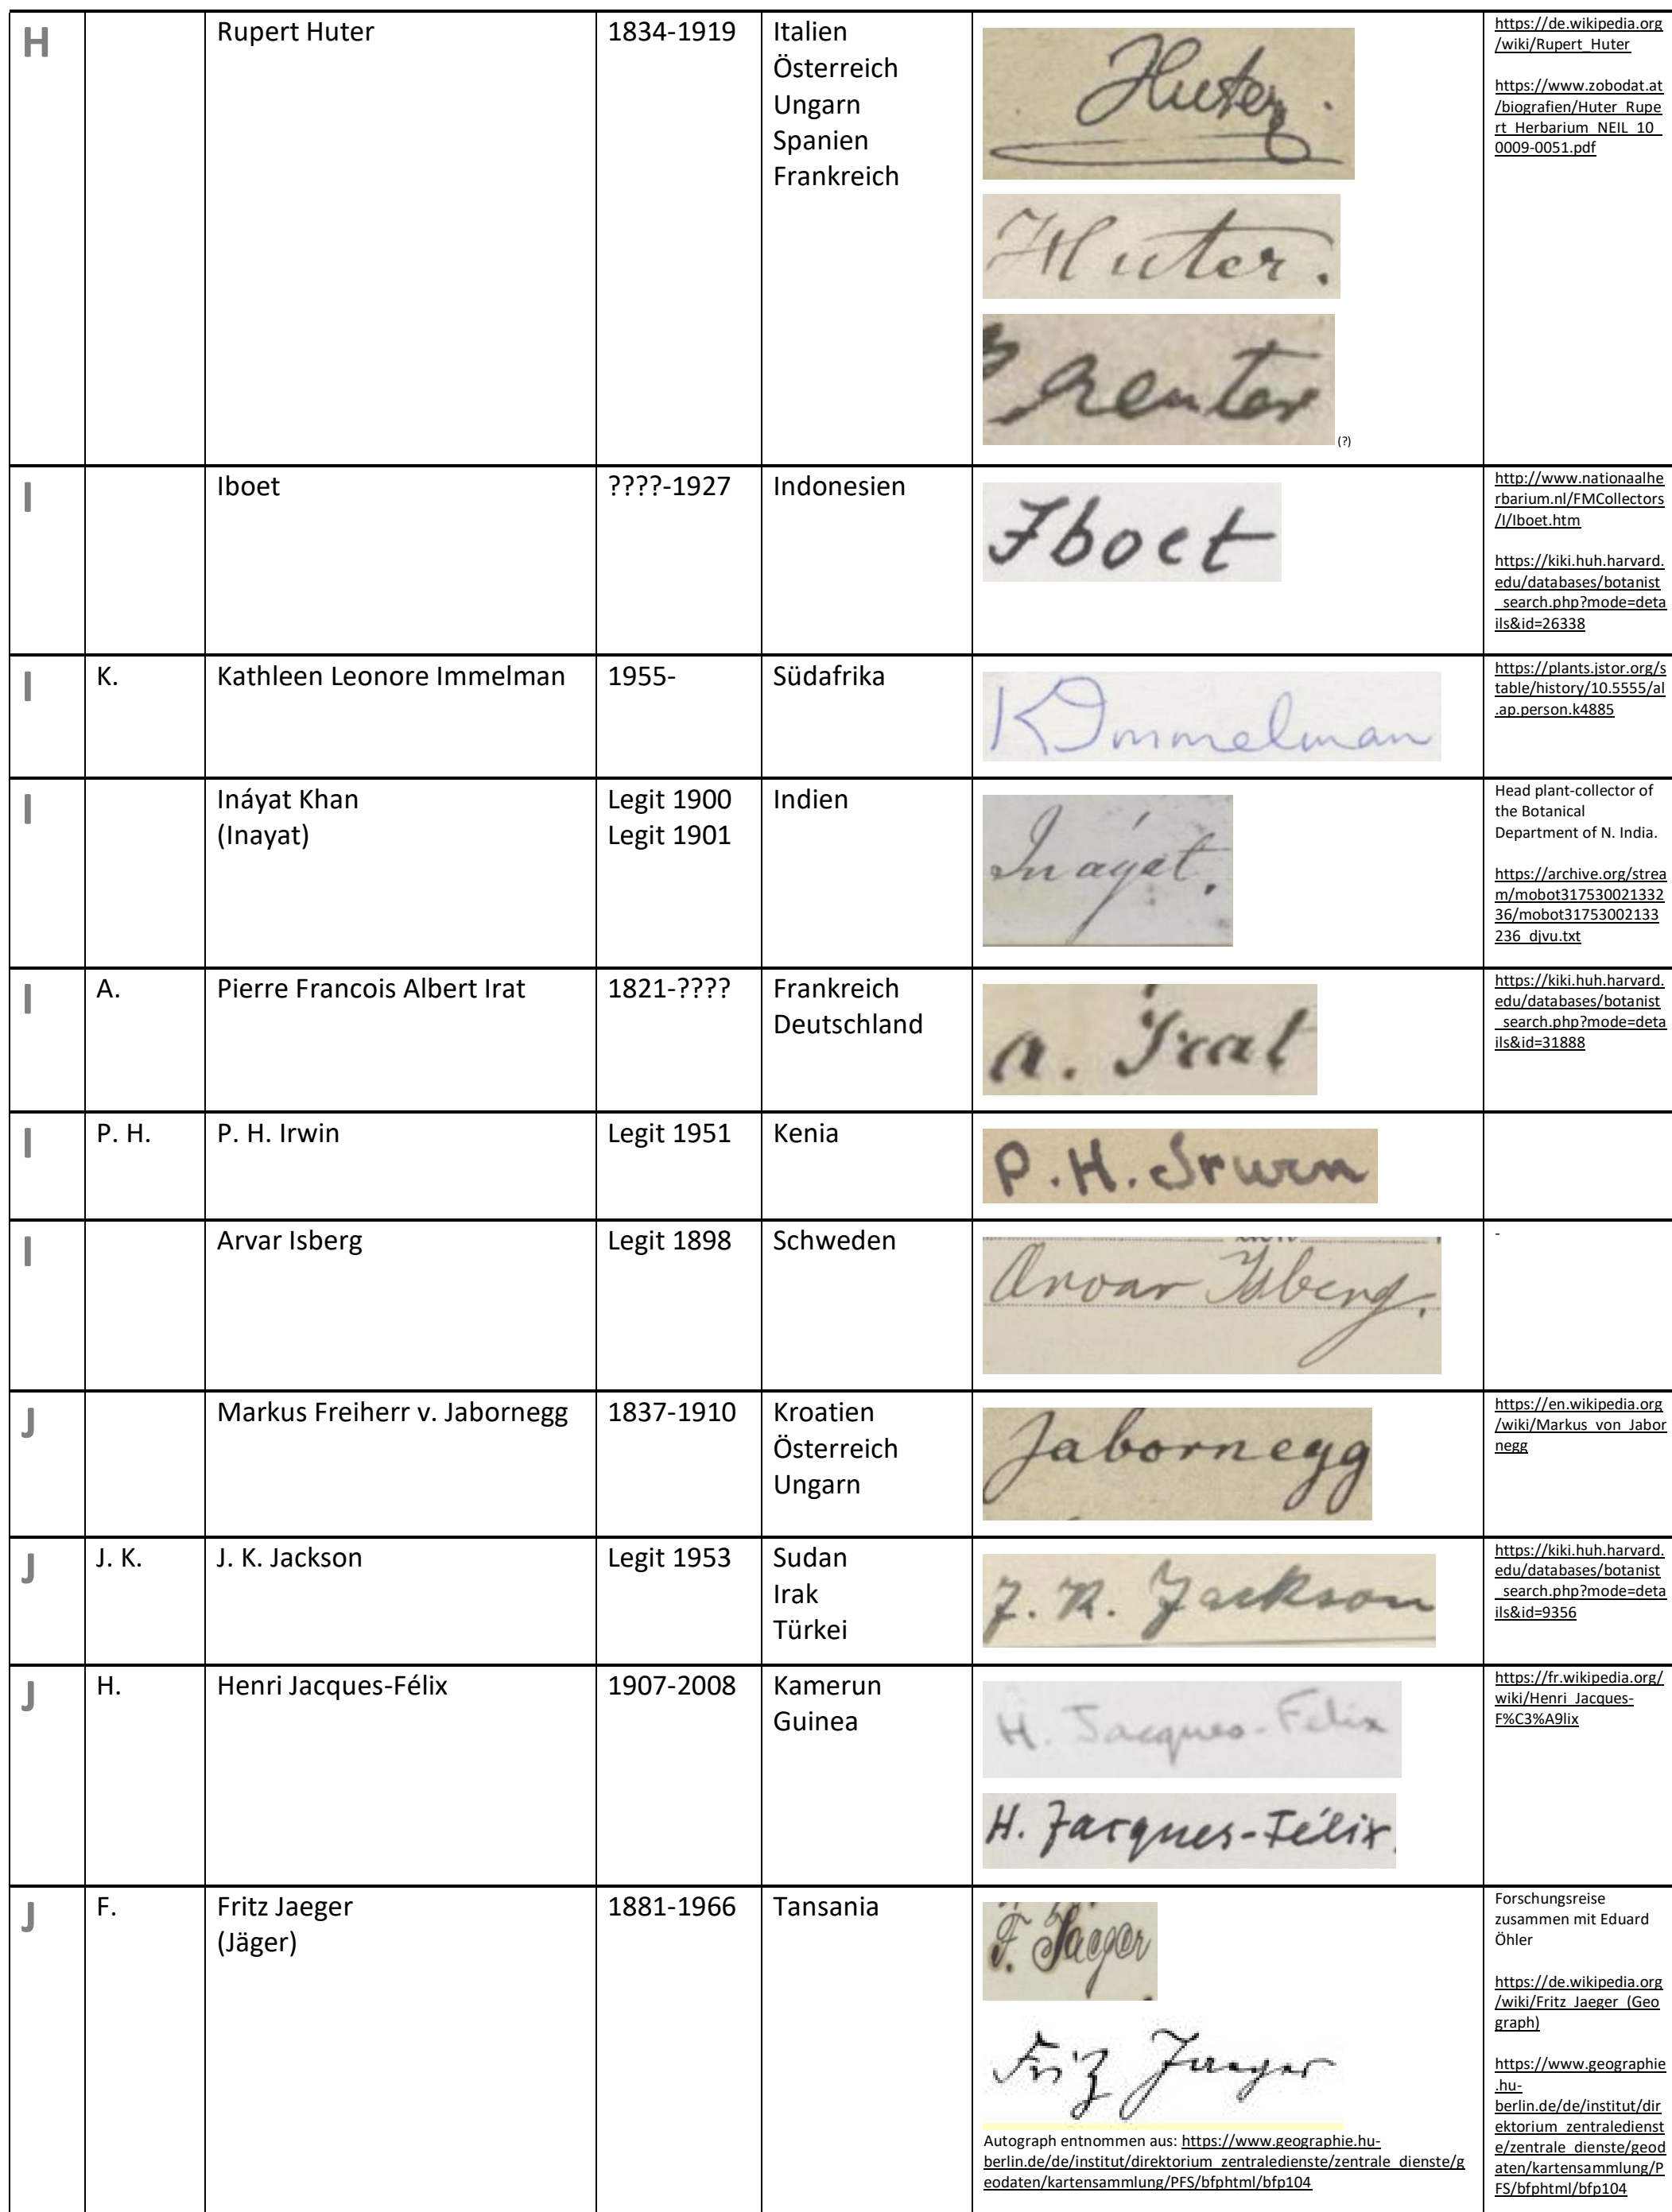 H
Rupert Huter
1834-1919
Italien
Österreich
Ungarn
Spanien
Frankreich
Huter.
Huter.
(?)
https://de.wikipedia.org
/wiki/Rupert_Huter
https://www.zobodat.at
/biografien/Huter_Rupe
rt_Herbarium_NEIL_10_
0009-0051.pdf
I
Iboet
????-1927
Indonesien
Iboet
http://www.nationaalhe
rbarium.nl/FMCollectors
/I/Iboet.htm
https://kiki.huh.harvard.
edu/databases/botanist
_search.php?mode=deta
ils&id=26338
I
K.
Kathleen Leonore Immelman
1955-
Südafrika
K Immelman
https://plants.jstor.org/s
table/history/10.5555/al
.ap.person.k4885
I
Ináyat Khan
(Inayat)
Legit 1900
Legit 1901
Indien
Ináyat.
Head plant-collector of
the Botanical
Department of N. India.
https://archive.org/strea
m/mobot317530021332
36/mobot31753002133
236_djvu.txt
I
A.
Pierre Francois Albert Irat
1821-????
Frankreich
Deutschland
A. Irat
https://kiki.huh.harvard.
edu/databases/botanist
_search.php?mode=deta
ils&id=31888
I
P. H.
P. H. Irwin
Legit 1951
Kenia
P.H. Irwin
I
Arvar Isberg
Legit 1898
Schweden
Arvar Isberg.
-
J
Markus Freiherr v. Jabornegg
1837-1910
Kroatien
Österreich
Ungarn
Jabornegg
https://en.wikipedia.org
/wiki/Markus_von_Jabor
negg
J
J. K.
J. K. Jackson
Legit 1953
Sudan
Irak
Türkei
J. K. Jackson
https://kiki.huh.harvard.
edu/databases/botanist
_search.php?mode=deta
ils&id=9356
J
H.
Henri Jacques-Félix
1907-2008
Kamerun
Guinea
H. Jacques-Felix
H. Jacques-Félix.
https://fr.wikipedia.org/
wiki/Henri_Jacques-
F%C3%A9lix
J
F.
Fritz Jaeger
(Jäger)
1881-1966
Tansania
F. Jaeger
Fritz Jaeger
Autograph entnommen aus: https://www.geographie.hu-
berlin.de/de/institut/direktorium_zentraledienste/zentrale_dienste/g
eodaten/kartensammlung/PFS/bfphtml/bfp104
Forschungsreise
zusammen mit Eduard
Öhler
https://de.wikipedia.org
/wiki/Fritz_Jaeger_(Geo
graph)
https://www.geographie
.hu-
berlin.de/de/institut/dir
ektorium_zentraledienst
e/zentrale_dienste/geod
aten/kartensammlung/P
FS/bfphtml/bfp104